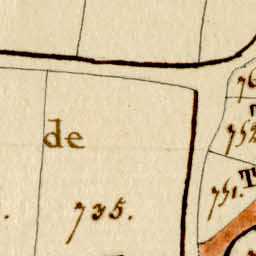 de
735.
752
751.
T